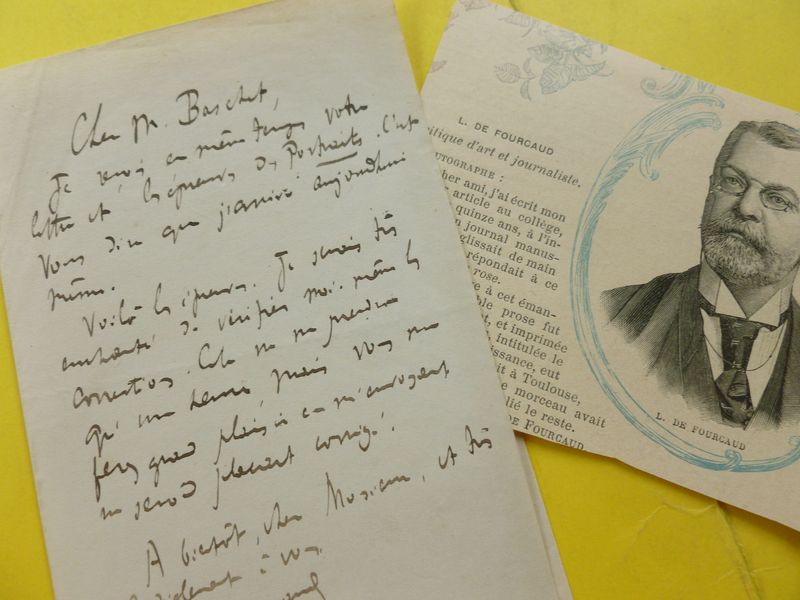 Cher M. Baschet,
Je reçois en même temps votre
lettre et les épreuves des Portraits. C'est
vous dire que j'arrive aujourdhui
même.
Voilà les épreuves. Je serais très
enchanté de vérifier moi-même les
corrections. Cela ne me prendra
qu'une heure, mais vous me
ferez grand plaisir en m'envoyant
un second placard corrigé.
A bientôt, cher Monsieur, et très
cordialement à vous.
L. DE FOURCAUD
critique d'art et journaliste.
AUTOGRAPHE :
her ami, j'ai écrit mon
article au collège,
quinze ans, à l'in-
n journal manus-
glissait de main
répondait à ce
rose.
e à cet éman-
ble prose fut
t, et imprimée
intitulée le
issance, eut
it à Toulouse,
e morceau avait
lié le reste.
DE FOURCAUD
L. DE FOURCAUD